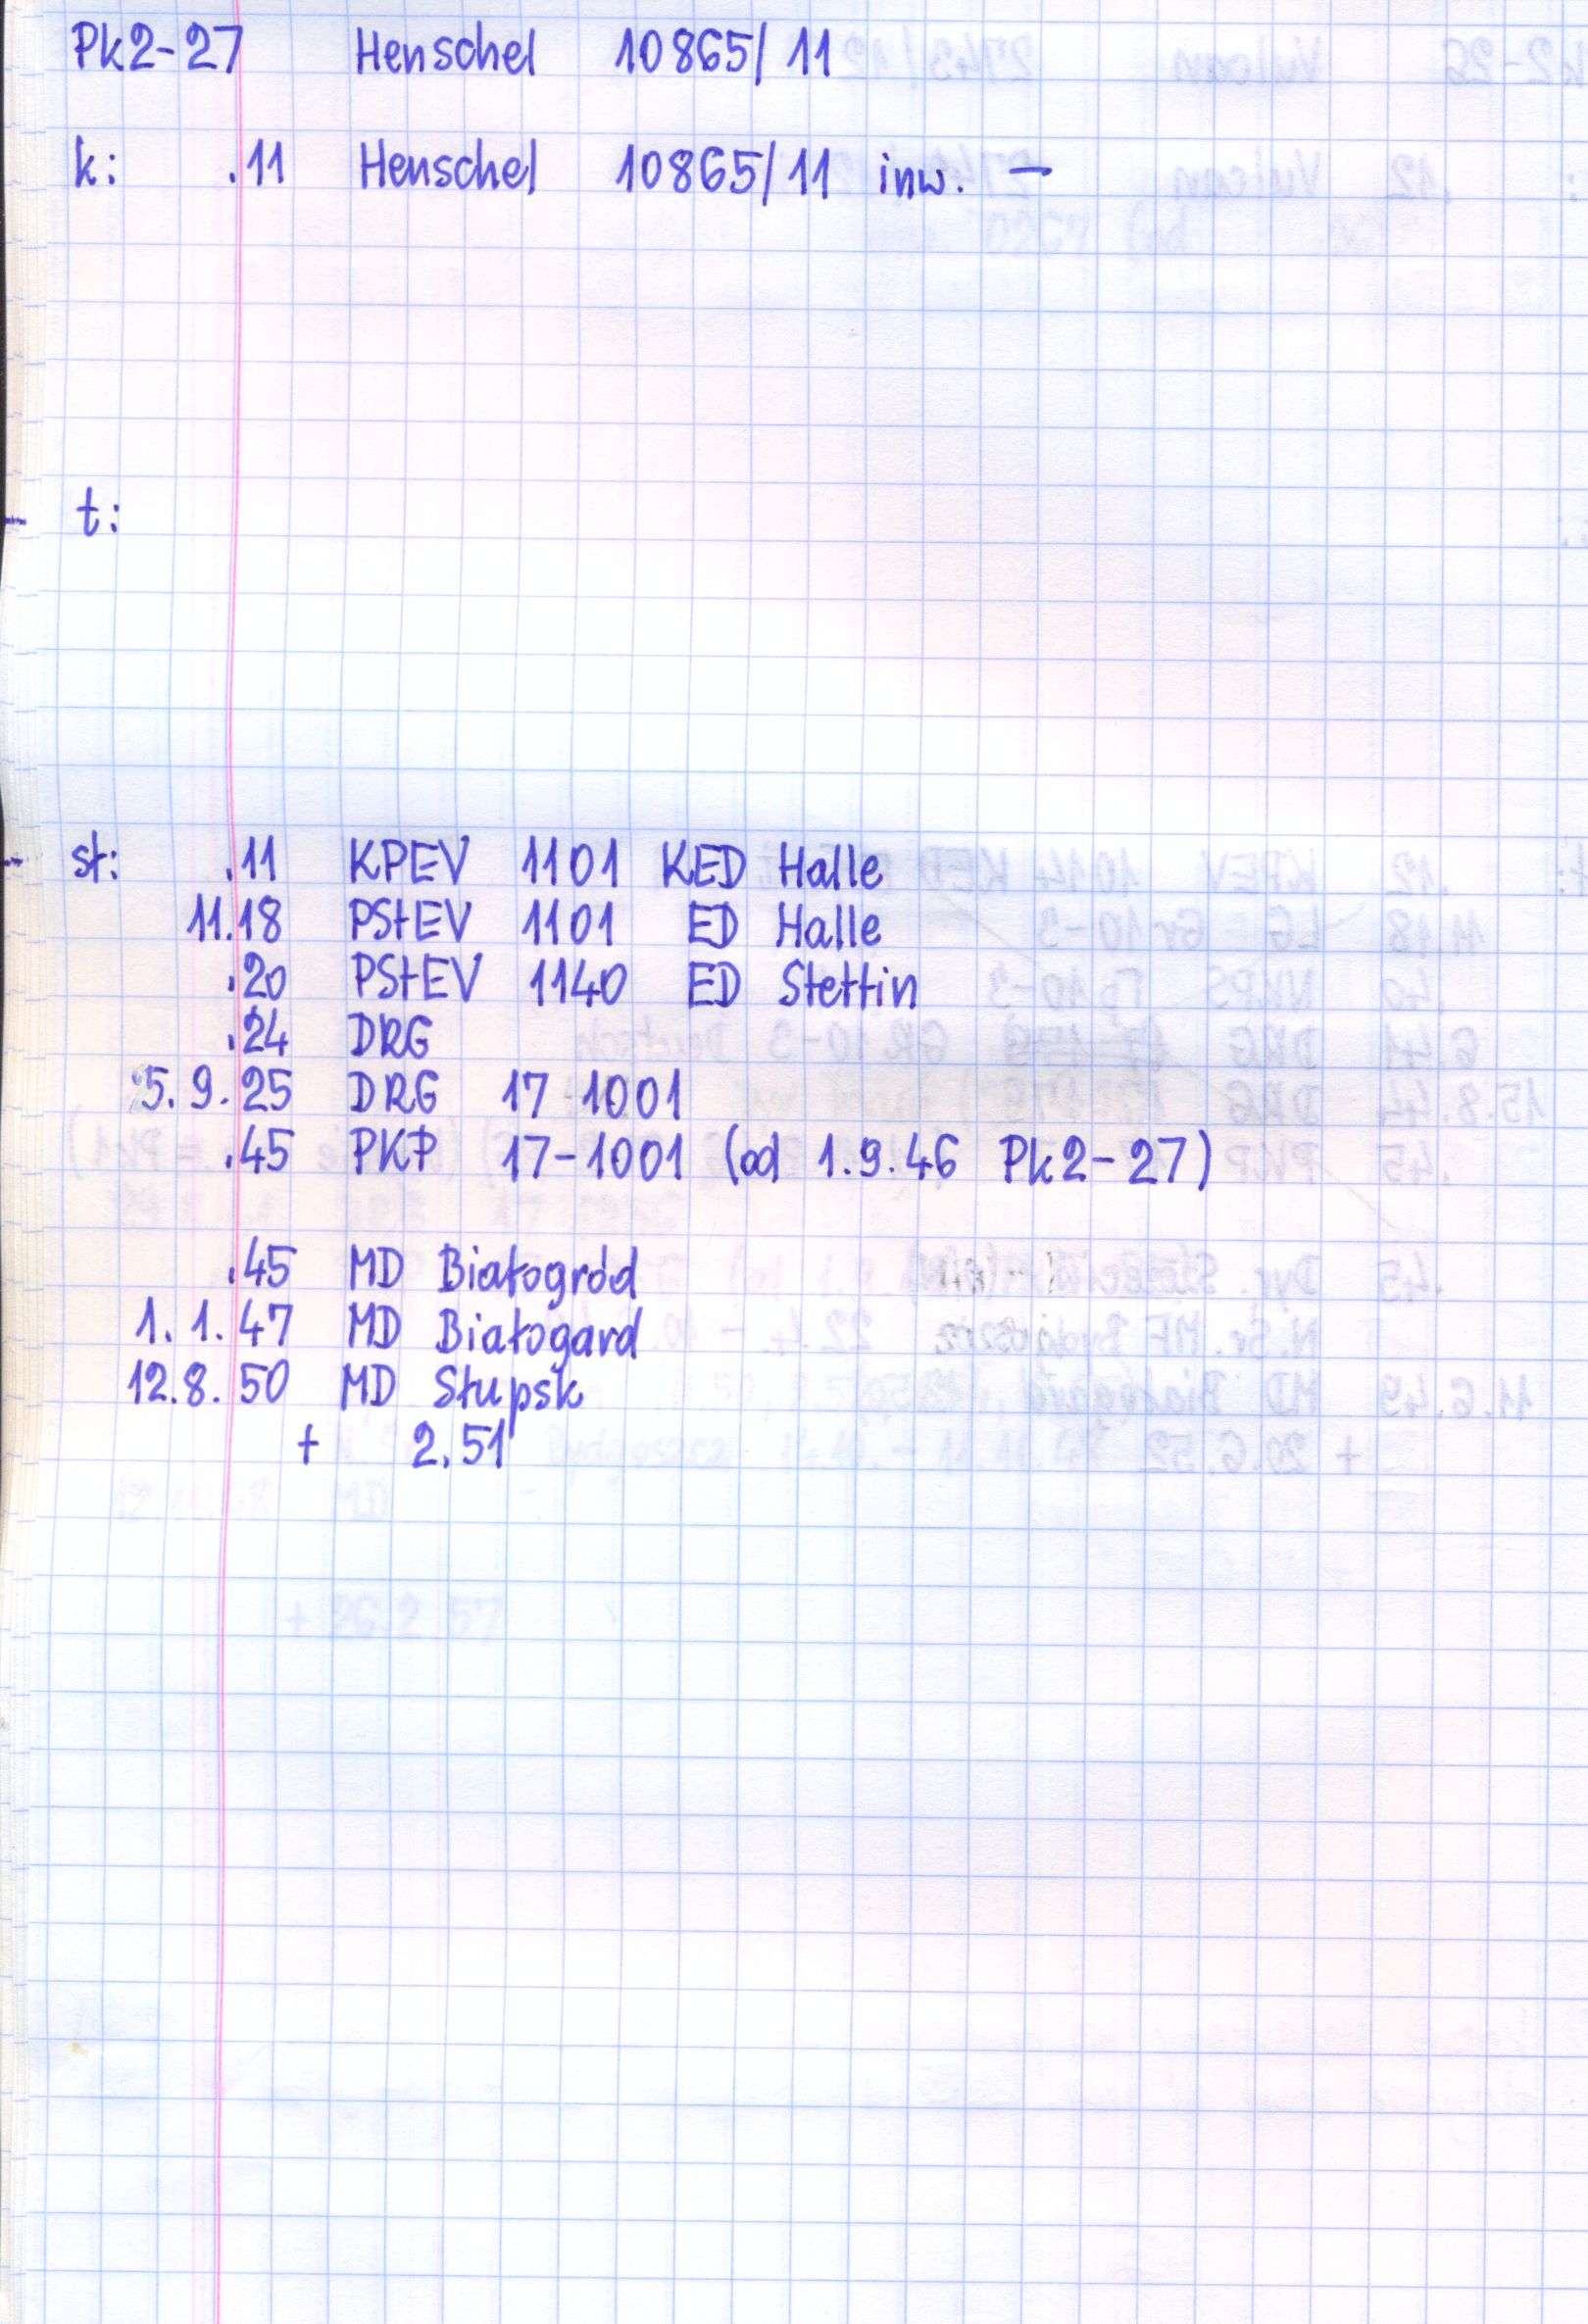 Pk2-27 Henschel 10865/11
k: .11 Henschel 10865/11 inw. –
t:
st: .11 KPEV 1101 KED Halle
11.18 PStEV 1101 ED Halle
.20 PStEV 1140 ED Stettin
.24 DRG
5.9.25 DRG 17 1001
.45 PKP 17-1001 (od 1.9.46 Pk2-27)
.45 MD Białogród
1.1.47 MD Białogard
12.8.50 MD Słupsk
+ 2.51